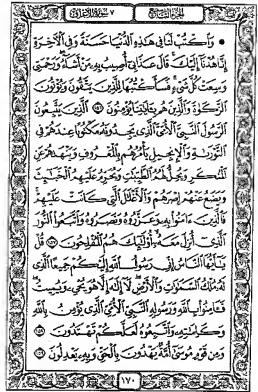 الجزء التاسع ٧ سورة الأعراف
وَاكْتُبْ لَنَا فِي هَذِهِ الدُّنْيَا حَسَنَةً وَفِي الْآخِرَةِ
إِنَّا هُدْنَا إِلَيْكَ قَالَ عَذَابِي أُصِيبُ بِهِ مَنْ أَشَاءُ وَرَحْمَتِي
وَسِعَتْ كُلَّ شَيْءٍ فَسَأَكْتُبُهَا لِلَّذِينَ يَتَّقُونَ وَيُؤْتُونَ
الزَّكَوٰةَ وَالَّذِينَ هُم بِـَٔايَٰتِنَا يُؤْمِنُونَ ١٥٦ الَّذِينَ يَتَّبِعُونَ
الرَّسُولَ النَّبِيَّ الْأُمِّيَّ الَّذِي يَجِدُونَهُ مَكْتُوبًا عِندَهُمْ فِي
التَّوْرَىٰةِ وَالْإِنجِيلِ يَأْمُرُهُم بِالْمَعْرُوفِ وَيَنْهَىٰهُمْ عَنِ
الْمُنكَرِ وَيُحِلُّ لَهُمُ الطَّيِّبَٰتِ وَيُحَرِّمُ عَلَيْهِمُ الْخَبَٰٓئِثَ
وَيَضَعُ عَنْهُمْ إِصْرَهُمْ وَالْأَغْلَٰلَ الَّتِي كَانَتْ عَلَيْهِمْ
فَالَّذِينَ ءَامَنُوا بِهِ وَعَزَّرُوهُ وَنَصَرُوهُ وَاتَّبَعُوا النُّورَ
الَّذِي أُنزِلَ مَعَهُ أُولَٰئِكَ هُمُ الْمُفْلِحُونَ ١٥٧ قُلْ
يَٰٓأَيُّهَا النَّاسُ إِنِّي رَسُولُ اللَّهِ إِلَيْكُمْ جَمِيعًا الَّذِي
لَهُ مُلْكُ السَّمَٰوَٰتِ وَالْأَرْضِ لَا إِلَٰهَ إِلَّا هُوَ يُحْيِي وَيُمِيتُ
فَـَٔامِنُوا بِاللَّهِ وَرَسُولِهِ النَّبِيِّ الْأُمِّيِّ الَّذِي يُؤْمِنُ بِاللَّهِ
وَكَلِمَٰتِهِ وَاتَّبِعُوهُ لَعَلَّكُمْ تَهْتَدُونَ ١٥٨
وَمِن قَوْمِ مُوسَىٰ أُمَّةٌ يَهْدُونَ بِالْحَقِّ وَبِهِ يَعْدِلُونَ ١٥٩
١٧٠